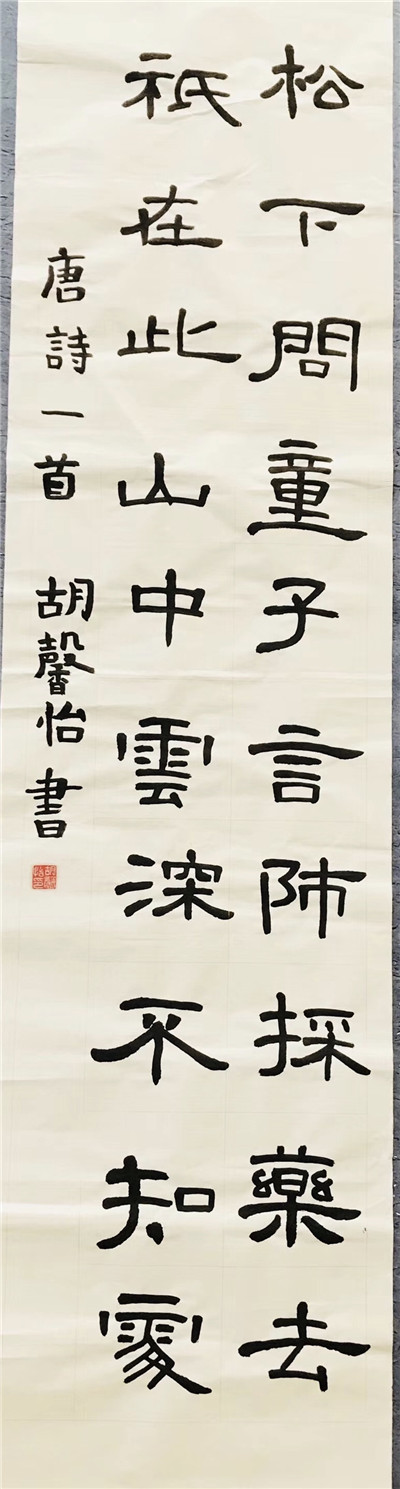 松下問童子言師採藥去
祇在此山中雲深不知處
唐詩一首 胡馨怡書